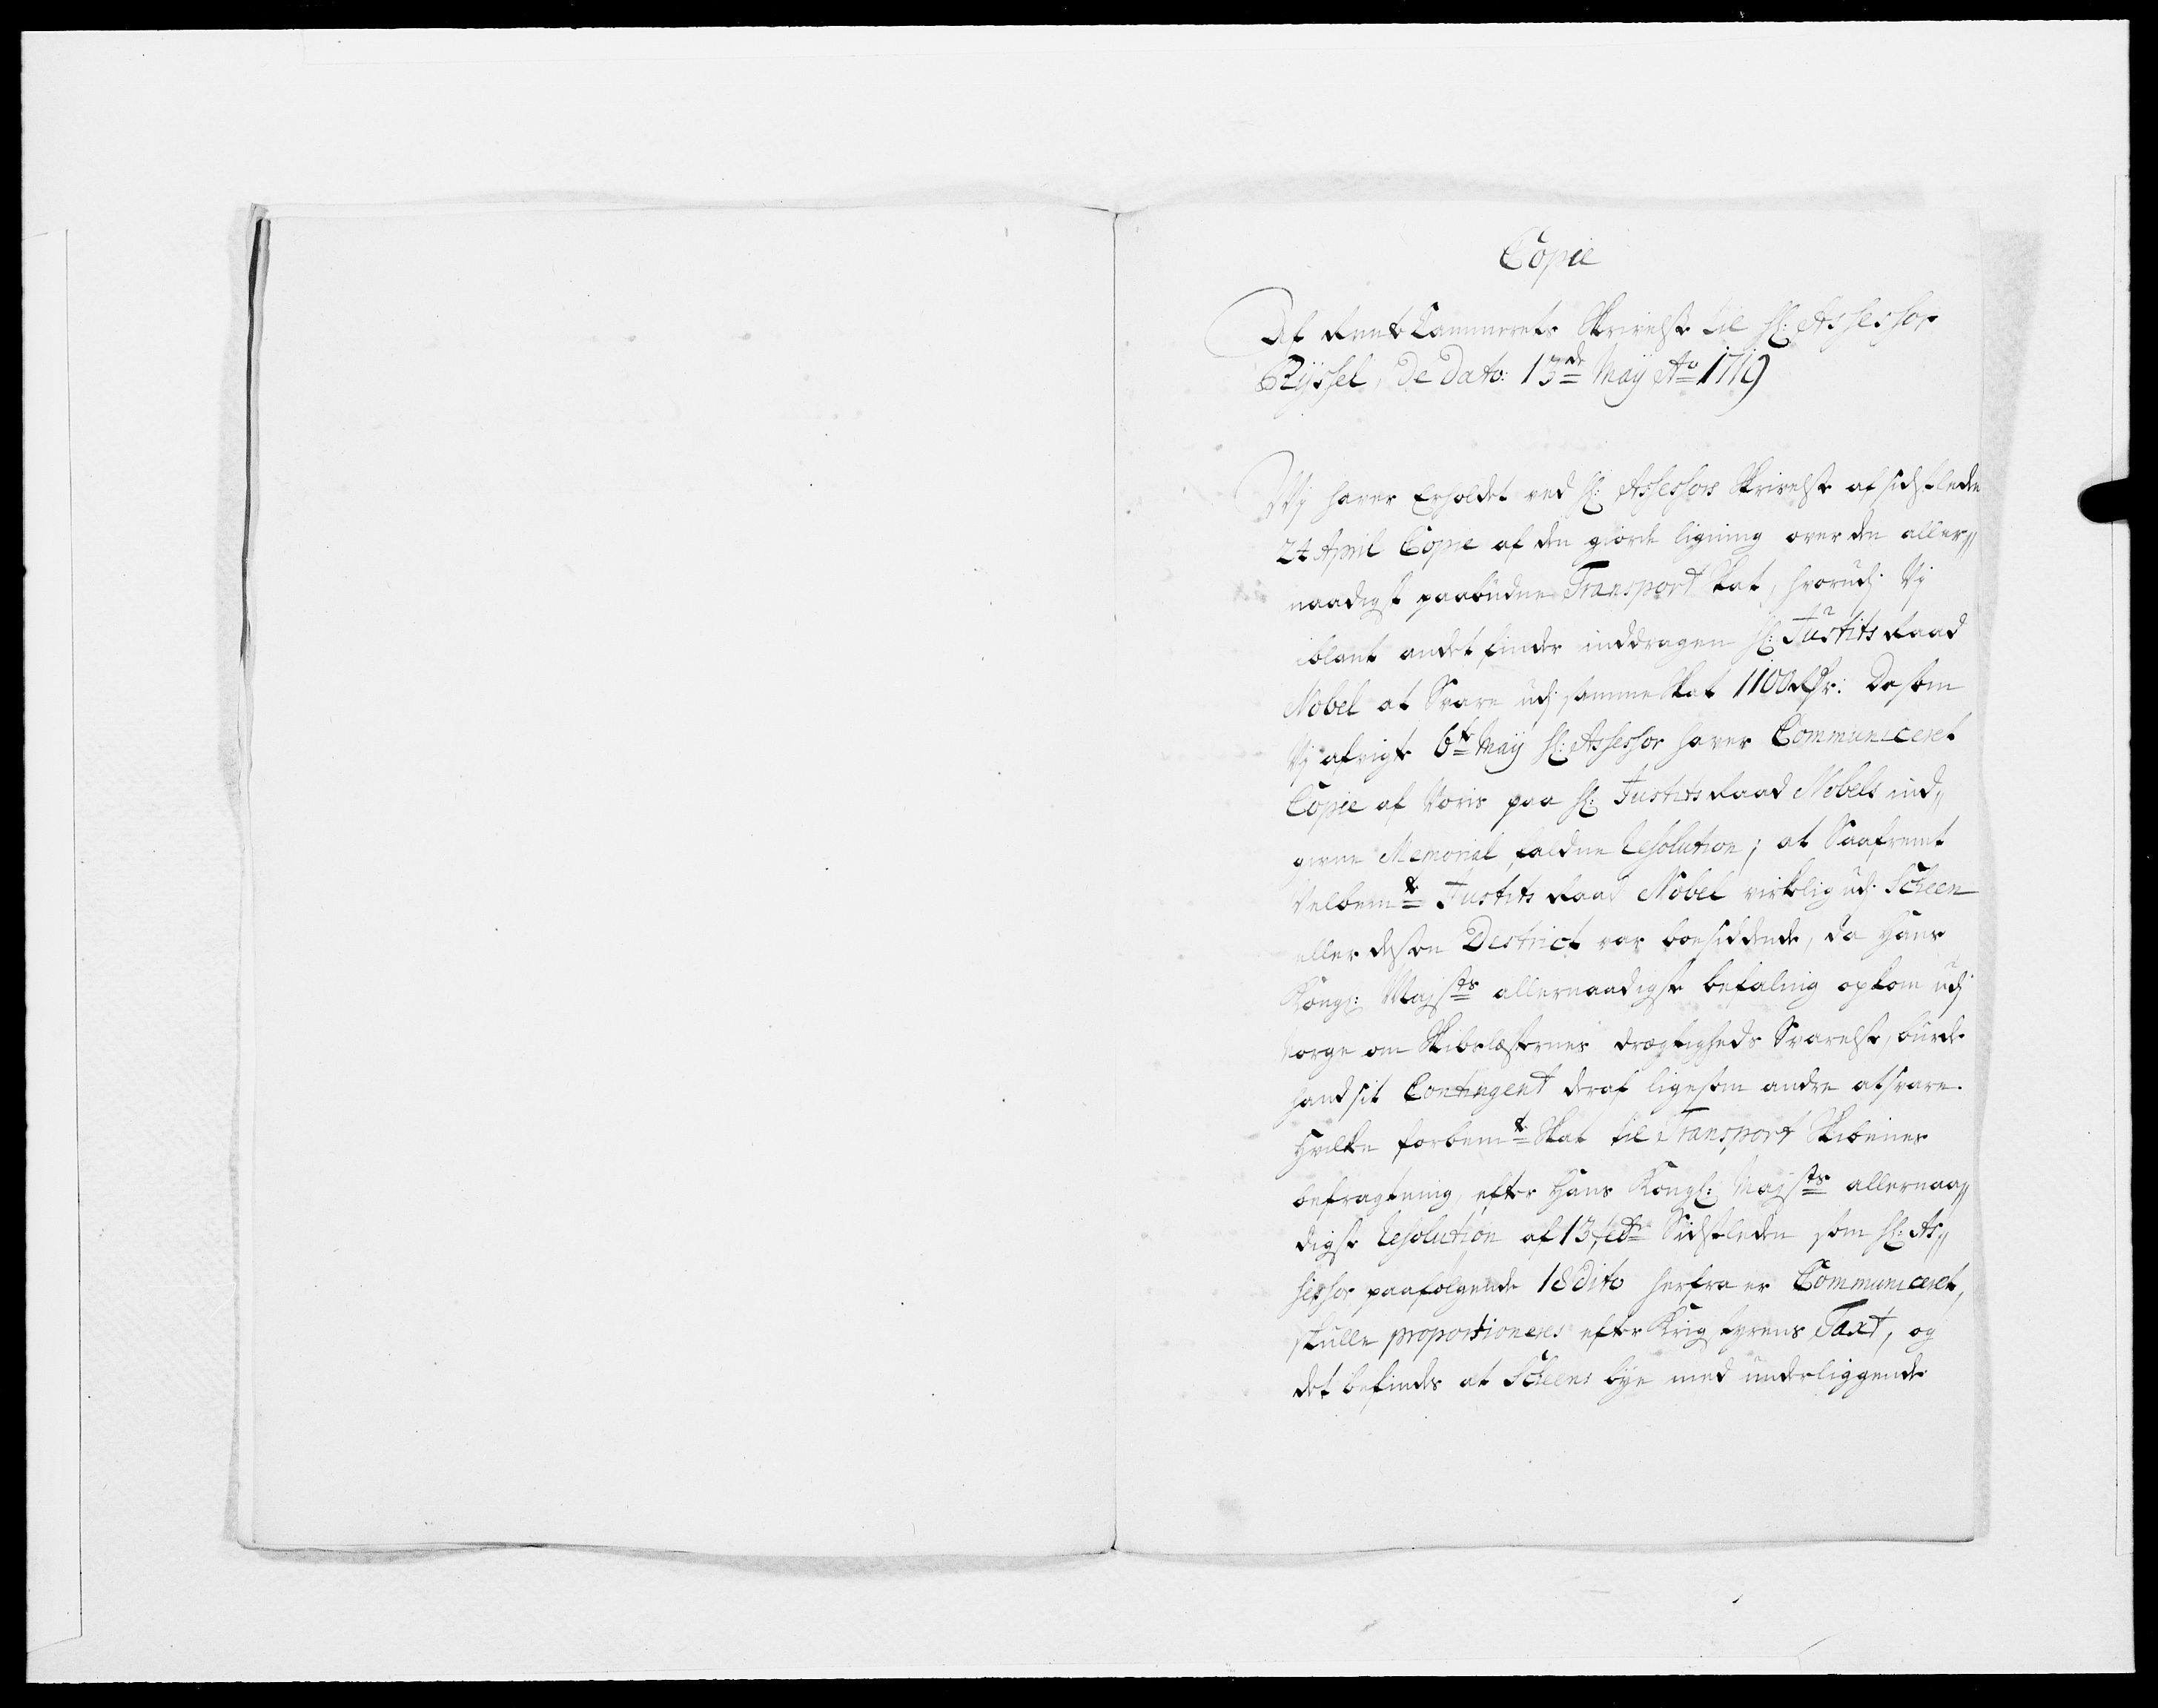 Copie
Af RenteCammerets Skrivelse til Hr: Assessor
Ryssel, De dato: 13de Maÿ Ao 1719
Wÿ haver Erholdet ved Hr: Assessors Skrivelse af sidstleden
24 April Copie af den giorde ligning over den aller„
naadigst paabudne Transport Skat, hvorudj Vÿ
iblant andet finder inddragen Hr: Justits Raad
Nobel at Svare udj samme Skat 1100 Rdr: Da som
Vÿ afvigte 6te Maÿ Hr: Assessor haver Communiceret
Copie af Voris paa Hr: Justits Raad Nobels ind„
givne Memorial faldne Resolution; at Saafremt
Velbemte Justits Raad Nobel virkelig udj Scheen
eller dessen District var boesiddende, da Hans
Kongl: Majsts allernaadigste befaling opkom udj
Norge om Skibslæsternes drægtigheds Svarelse, burde
hand sit Contingent deraf ligesom andre at svare.
Hvilke forbemte Skat til Transport Skibenes
befragtning, efter Hans Kongl: Majsts allernaa„
digste Resolution af 13 febr Sidstleden som Hr: As„
sessor paafølgende 18 dito herfra er Communiceret,
skulle proportioneres efter Krigstyrens Taxt, og
det befindes at Scheens bÿe med underliggende